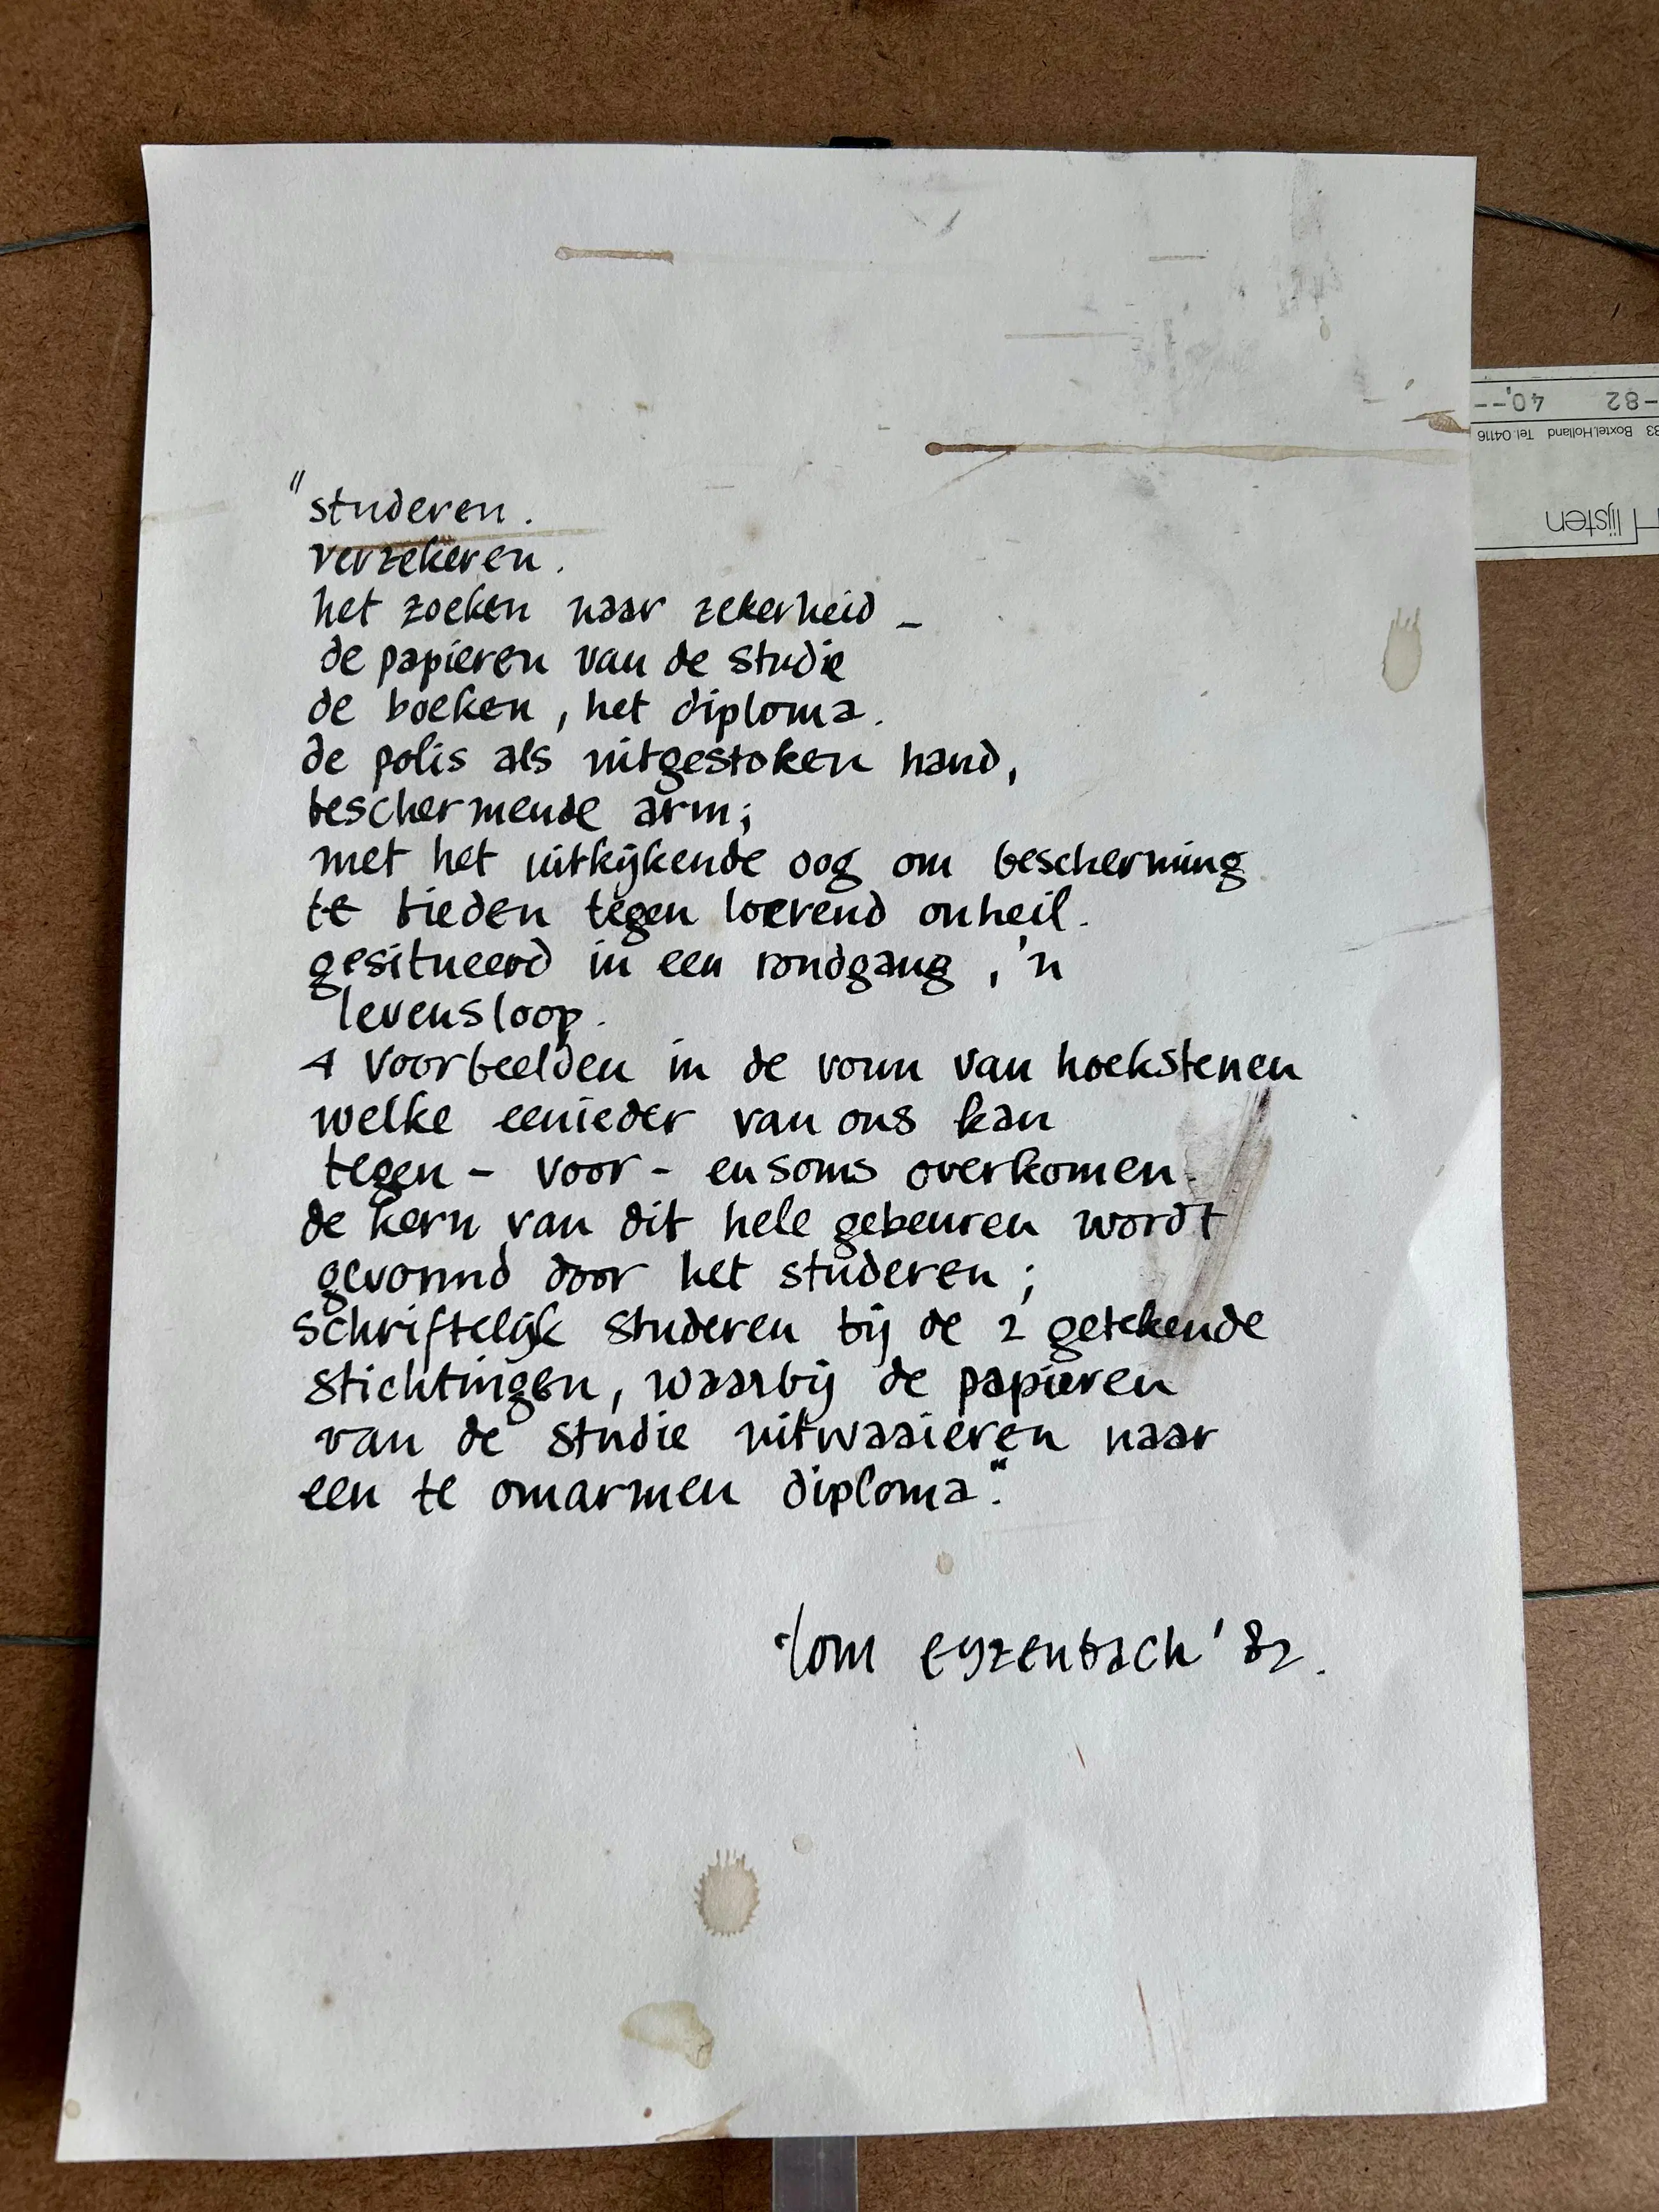 "studeren.
verzekeren.
het zoeken naar zekerheid –
de papieren van de studie
de boeken, het diploma.
de polis als uitgestoken hand,
beschermende arm;
met het uitkijkende oog om bescherming
te bieden tegen loerend onheil.
gesitueerd in een rondgang, 'n
levensloop.
4 voorbeelden in de vorm van hoekstenen
welke eenieder van ons kan
tegen - voor - en soms overkomen.
de kern van dit hele gebeuren wordt
gevormd door het studeren;
schriftelijk studeren bij de 2 getekende
stichtingen, waarbij de papieren
van de studie uitwaaieren naar
een te omarmen diploma."
tom eyzenbach '82.
-82 40,--
33 Boxtel.Holland Tel. 04116
lijsten